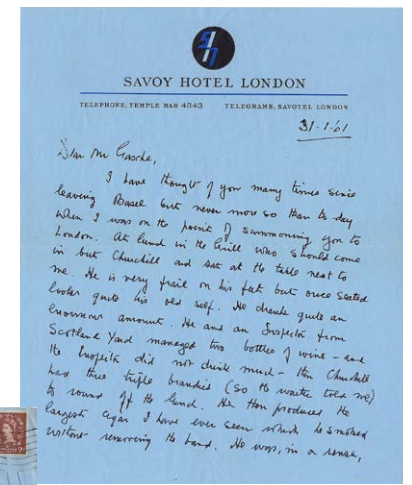 SAVOY HOTEL LONDON
TELEPHONE, TEMPLE BAR 4343 TELEGRAMS, SAVOTEL LONDON
31.1.61
Dear Mr Gasche,
I have thought of you many times since
leaving Basel but never more so than to day
when I was on the point of summoning you to
London. At lunch in the Grill who should come
in but Churchill and sat at the table next to
me. He is very frail on his feet but once seated
looks quite his old self. He drank quite an
enormous amount. He and an Inspector from
Scotland Yard managed two bottles of wine - and
the Inspector did not drink much - then Churchill
had three triple brandies (so the waiter told me)
to round off the lunch. He then produced the
largest cigar I have ever seen which he smoked
without removing the band. He was, in a sense,